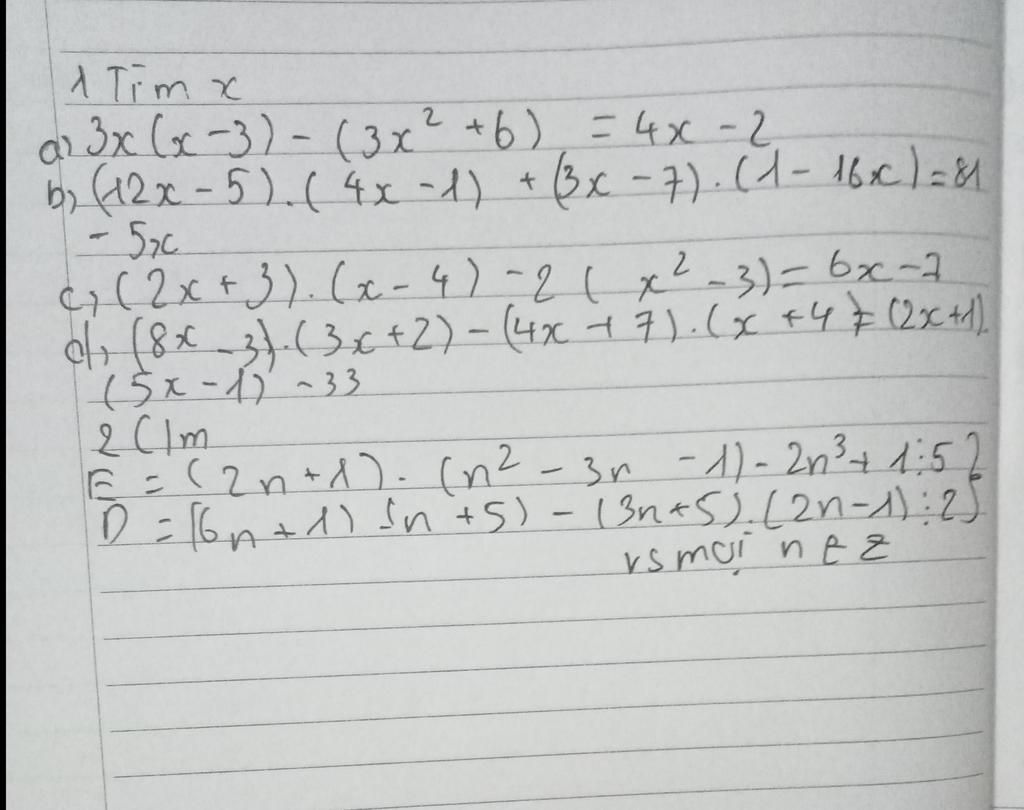 1 Tìm x
a, 3x(x-3) - (3x² +6) = 4x - 2
b, (12x - 5).( 4x - 1) + (3x - 7).(1 - 16x) = 81
- 5x
c, (2x + 3).(x - 4) - 2 ( x² - 3) = 6x - 7
d, (8x - 3).(3x + 2) - (4x + 7).(x + 4) = (2x+1).
(5x - 1) - 33
2 C/m
E = (2n + 1). (n² - 3n - 1) - 2n³ + 1 ⋮ 5 }
D = (6n + 1) (n + 5) - (3n + 5).(2n - 1) ⋮ 2 }
vs mọi n ∈ Z